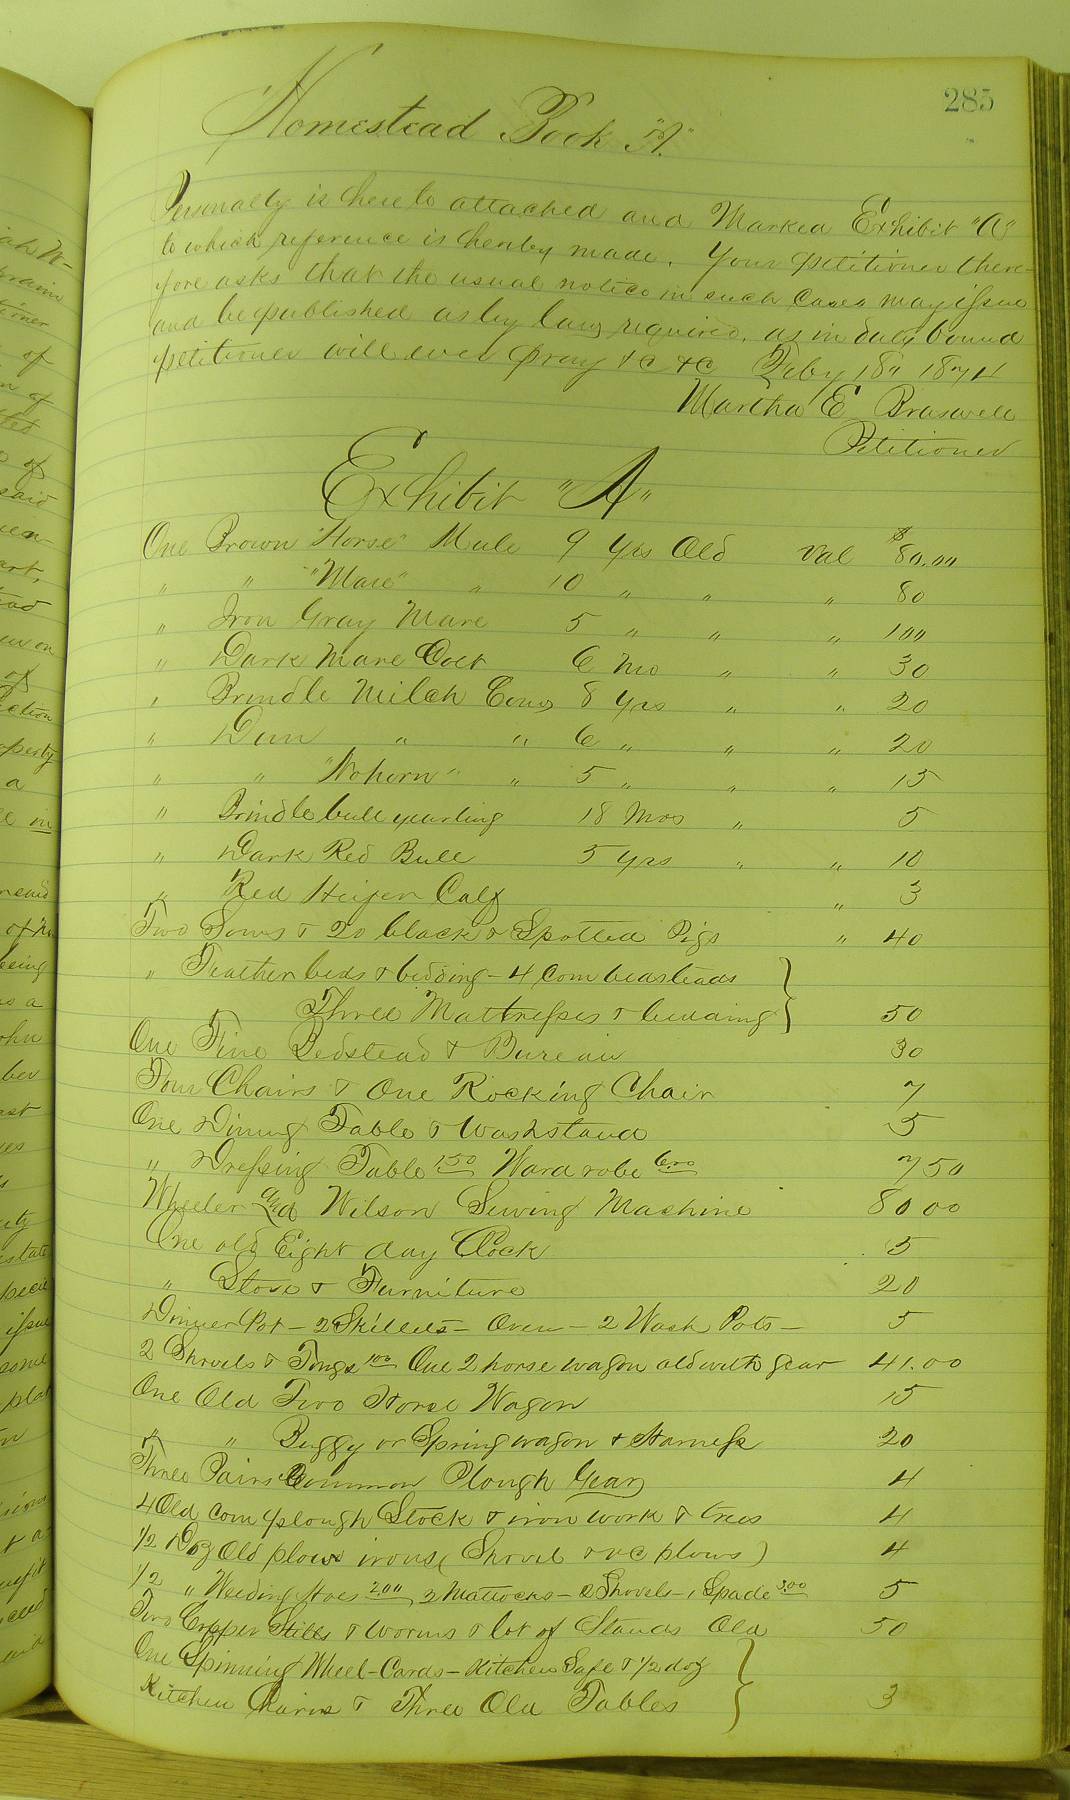 285
Homestead Book "A"
Personalty is hereto attached and Marked Exhibit "A"
to which reference is hereby made. Your petitioner there-
fore asks that the usual notice in such Cases may issue
and be published as by law required, as in duty bound
petitioner will ever pray &c &c Feby 18" 1874
Martha E Braswell
Petitioner
Exhibit "A"
One Brown "Horse" Mule 9 yrs Old val $80.00
" " "Mare" " 10 " " " 80
" Iron Gray Mare 5 " " " 100
" Dark Mare Colt 6 Mo " " 30
" Brindle Milch Cow 8 yrs " " 20
" Dun " " 6 " " " 20
" " "Nohorn" " 5 " " " 15
" Brindle bull yearling 18 Mos " 5
" Dark Red Bull 5 yrs " " 10
" Red Heifer Calf " 3
Two Sows & 20 black & Spotted Pigs " 40
" Feather beds & bedding - 4 Com beasteads
Three Mattresses & bedding 50
One Fine Bedstead & Bureau 30
Four Chairs & One Rocking Chair 7
One Dining Table & Washstand 5
" Dressing Table 1 50 Wardrobe 6.00 7 50
Wheeler and Wilson Sewing Machine 80 00
One old Eight day Clock 5
" Stove & Furniture 20
Dinner Pot - 2 Skillets - Oven - 2 Wash Pots - 5
2 Shovels & Tongs 1 00 One 2 horse wagon old with gear 41.00
One Old Two Horse Wagon 15
" " Buggy or Spring wagon & Harness 20
Three Pairs Common Plough Gear 4
4 Old com plough Stock & iron work & trees 4
1/2 Doz Old plow irons (Shovel & c plows) 4
1/2 " Weeding Hoes 2.00 3 Mattocks - 2 Shovels - 1 Spade 3.00 5
Two Copper Stills & worms & lot of Stands Old 50
One Spinning Wheel - Cards - Kitchen Safe & 1/2 doz
Kitchen Chairs & Three Old Tables 3